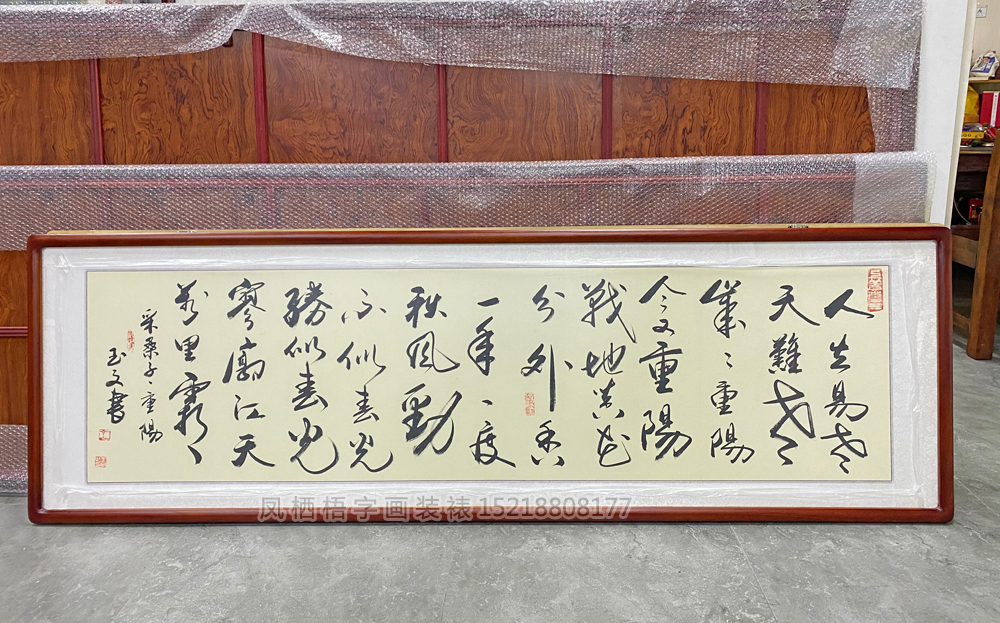 人生易老
天難老
歲〻重陽
今又重陽
戰地黃花
分外香
一年一度
秋風勁
不似春光
勝似春光
寥廓江天
萬里霜
采桑子、重陽
玉文書
凤栖梧字画装裱 15218808177